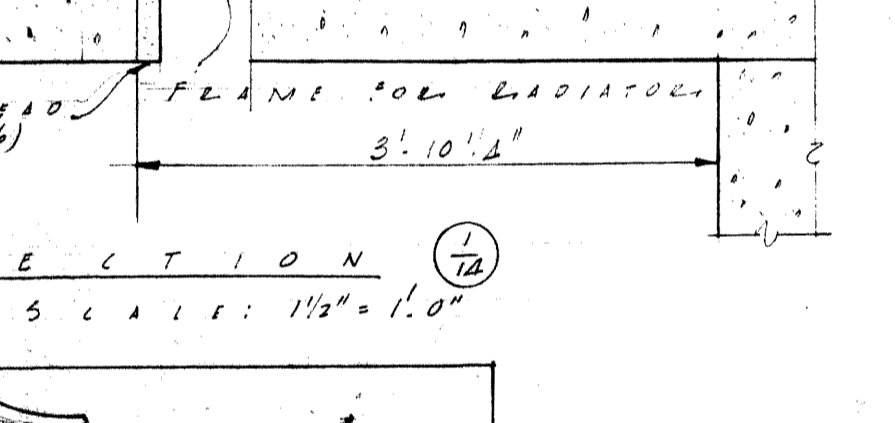 FRAME FOR RADIATOR
EAD
3'-10 1/4"
ECTION 1/14
SCALE: 1 1/2" = 1'-0"